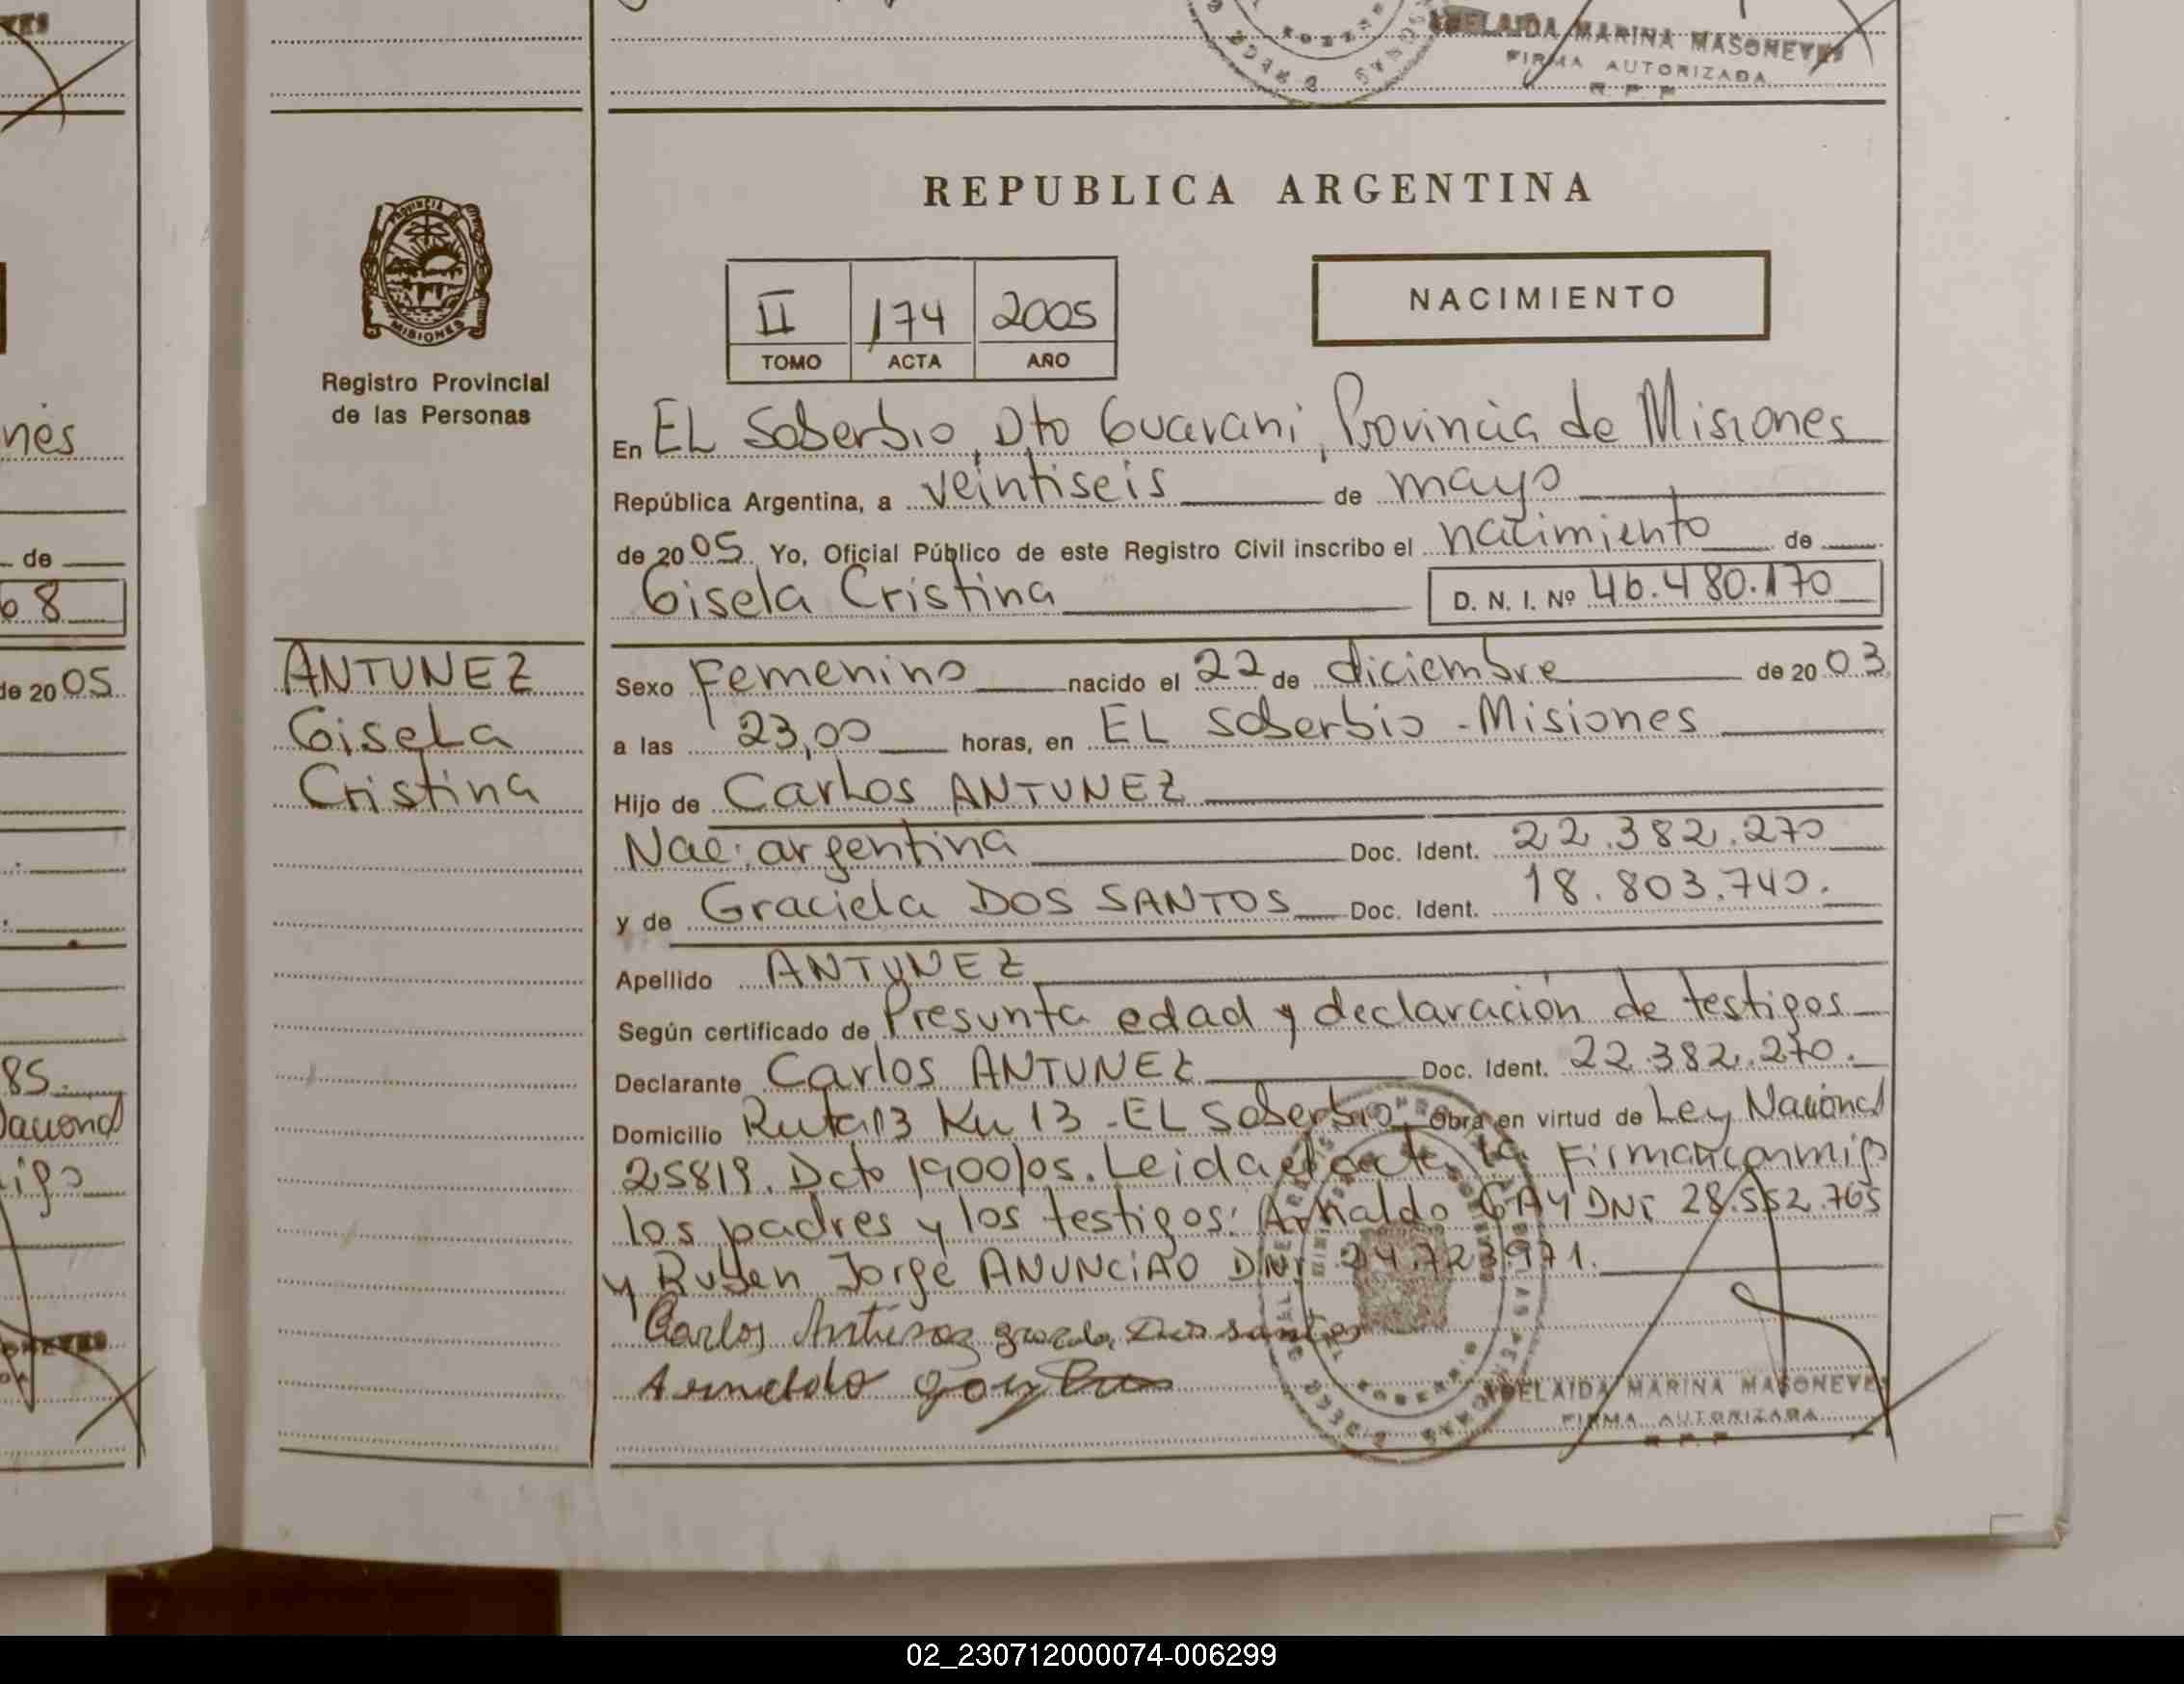 ADELAIDA MARINA MASONEYES
FIRMA AUTORIZADA
R.P.P.
nes
de
68
de 2005
85.
Nacional
igo
PROVINCIA DE
MISIONES
Registro Provincial
de las Personas
ANTUNEZ
Gisela
Cristina
REPUBLICA ARGENTINA
II 174 2005
TOMO ACTA AÑO
NACIMIENTO
En EL Soberbio, Dto Guarani, Provincia de Misiones
República Argentina, a veintiseis de mayo
de 2005. Yo, Oficial Público de este Registro Civil inscribo el nacimiento de
Gisela Cristina D. N. I. Nº 46.480.170
Sexo Femenino nacido el 22 de diciembre de 2003
a las 23,00 horas, en EL Soberbio - Misiones
Hijo de Carlos ANTUNEZ
Nac. argentina Doc. Ident. 22.382.270
y de Graciela DOS SANTOS Doc. Ident. 18.803.740.
Apellido ANTUNEZ
Según certificado de Presunta edad y declaración de testigos
Declarante Carlos ANTUNEZ Doc. Ident. 22.382.270.
Domicilio Ruta 13 Km 13 - EL Soberbio. Obra en virtud de Ley Nacional
25819. Dcto 1900/05. Leida el acta la Firman conmigo
los padres y los testigos: Arnaldo GAY DNI 28.552.765
y Ruben Jorge ANUNCIAO DNI 24.723.971.
Carlos Antunez Graciela Dos santos
ADELAIDA MARINA MASONEYES
FIRMA AUTORIZADA
R.P.P.
02_230712000074-006299